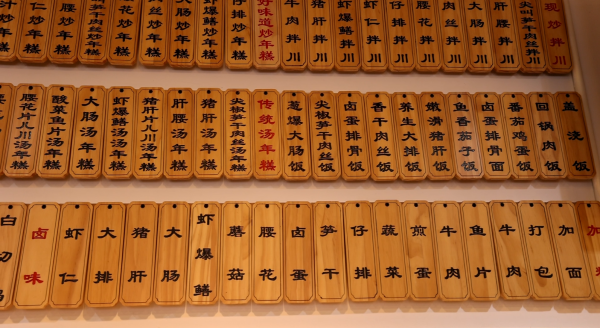 现炒拌川
笋干肉丝拌川
肝腰拌川
大肠拌川
肉丝拌川
腰花拌川
仔排拌川
虾仁拌川
虾爆鳝拌川
猪肝拌川
牛肉拌川
好味道炒年糕
仔排炒年糕
虾爆鳝炒年糕
大肠炒年糕
炒年糕
花炒年糕
笋干肉丝炒年糕
腰炒年糕
仁炒年糕
炒年糕
盖浇饭
回锅肉饭
番茄鸡蛋饭
卤蛋排骨面
鱼香茄子饭
嫩滑猪肝饭
养生大排饭
香干肉丝饭
卤蛋排骨饭
尖椒笋干肉丝饭
葱爆大肠饭
传统汤年糕
尖椒笋干肉丝汤年糕
猪肝汤年糕
肝腰汤年糕
猪肝片儿川汤年糕
虾爆鳝汤年糕
大肠汤年糕
酸菜鱼片汤年糕
腰花片儿川汤年糕
加
加面
打包
牛肉
鱼片
牛肉
煎蛋
蔬菜
仔排
笋干
卤蛋
腰花
蘑菇
虾爆鳝
大肠
猪肝
大排
虾仁
卤味
白切